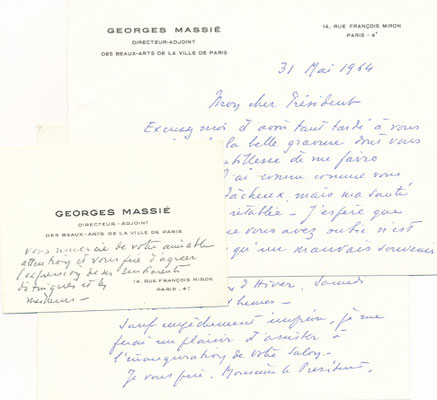 GEORGES MASSIÉ
DIRECTEUR-ADJOINT
DES BEAUX-ARTS DE LA VILLE DE PARIS
14, RUE FRANÇOIS MIRON
PARIS - 4e
31 Mai 1964
Mon cher Président
Excusez moi d'avoir tant tardé à vous
la belle gravure dont vous
gentillesse de me faire
J'ai connu comme vous
fâcheux, mais ma santé
rétablie - J'espère que
vous avez
qu'un mauvais souvenir
d'Hiver, Samedi
heures -
Sauf empêchement imprévu, je me
ferai un plaisir d'assister à
l'inauguration de votre Salon.
Je vous prie, Monsieur le Président,
GEORGES MASSIÉ
DIRECTEUR-ADJOINT
DES BEAUX-ARTS DE LA VILLE DE PARIS
vous remercie de votre aimable
attention et vous prie d'agréer
l'expression de ses sentiments
distingués et les
meilleurs -
14, RUE FRANÇOIS MIRON
PARIS - 4e